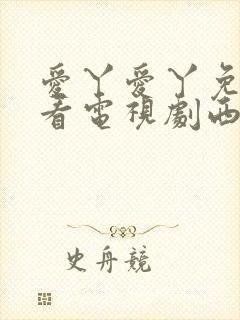 愛丫愛丫免
看電視劇西
史舟競